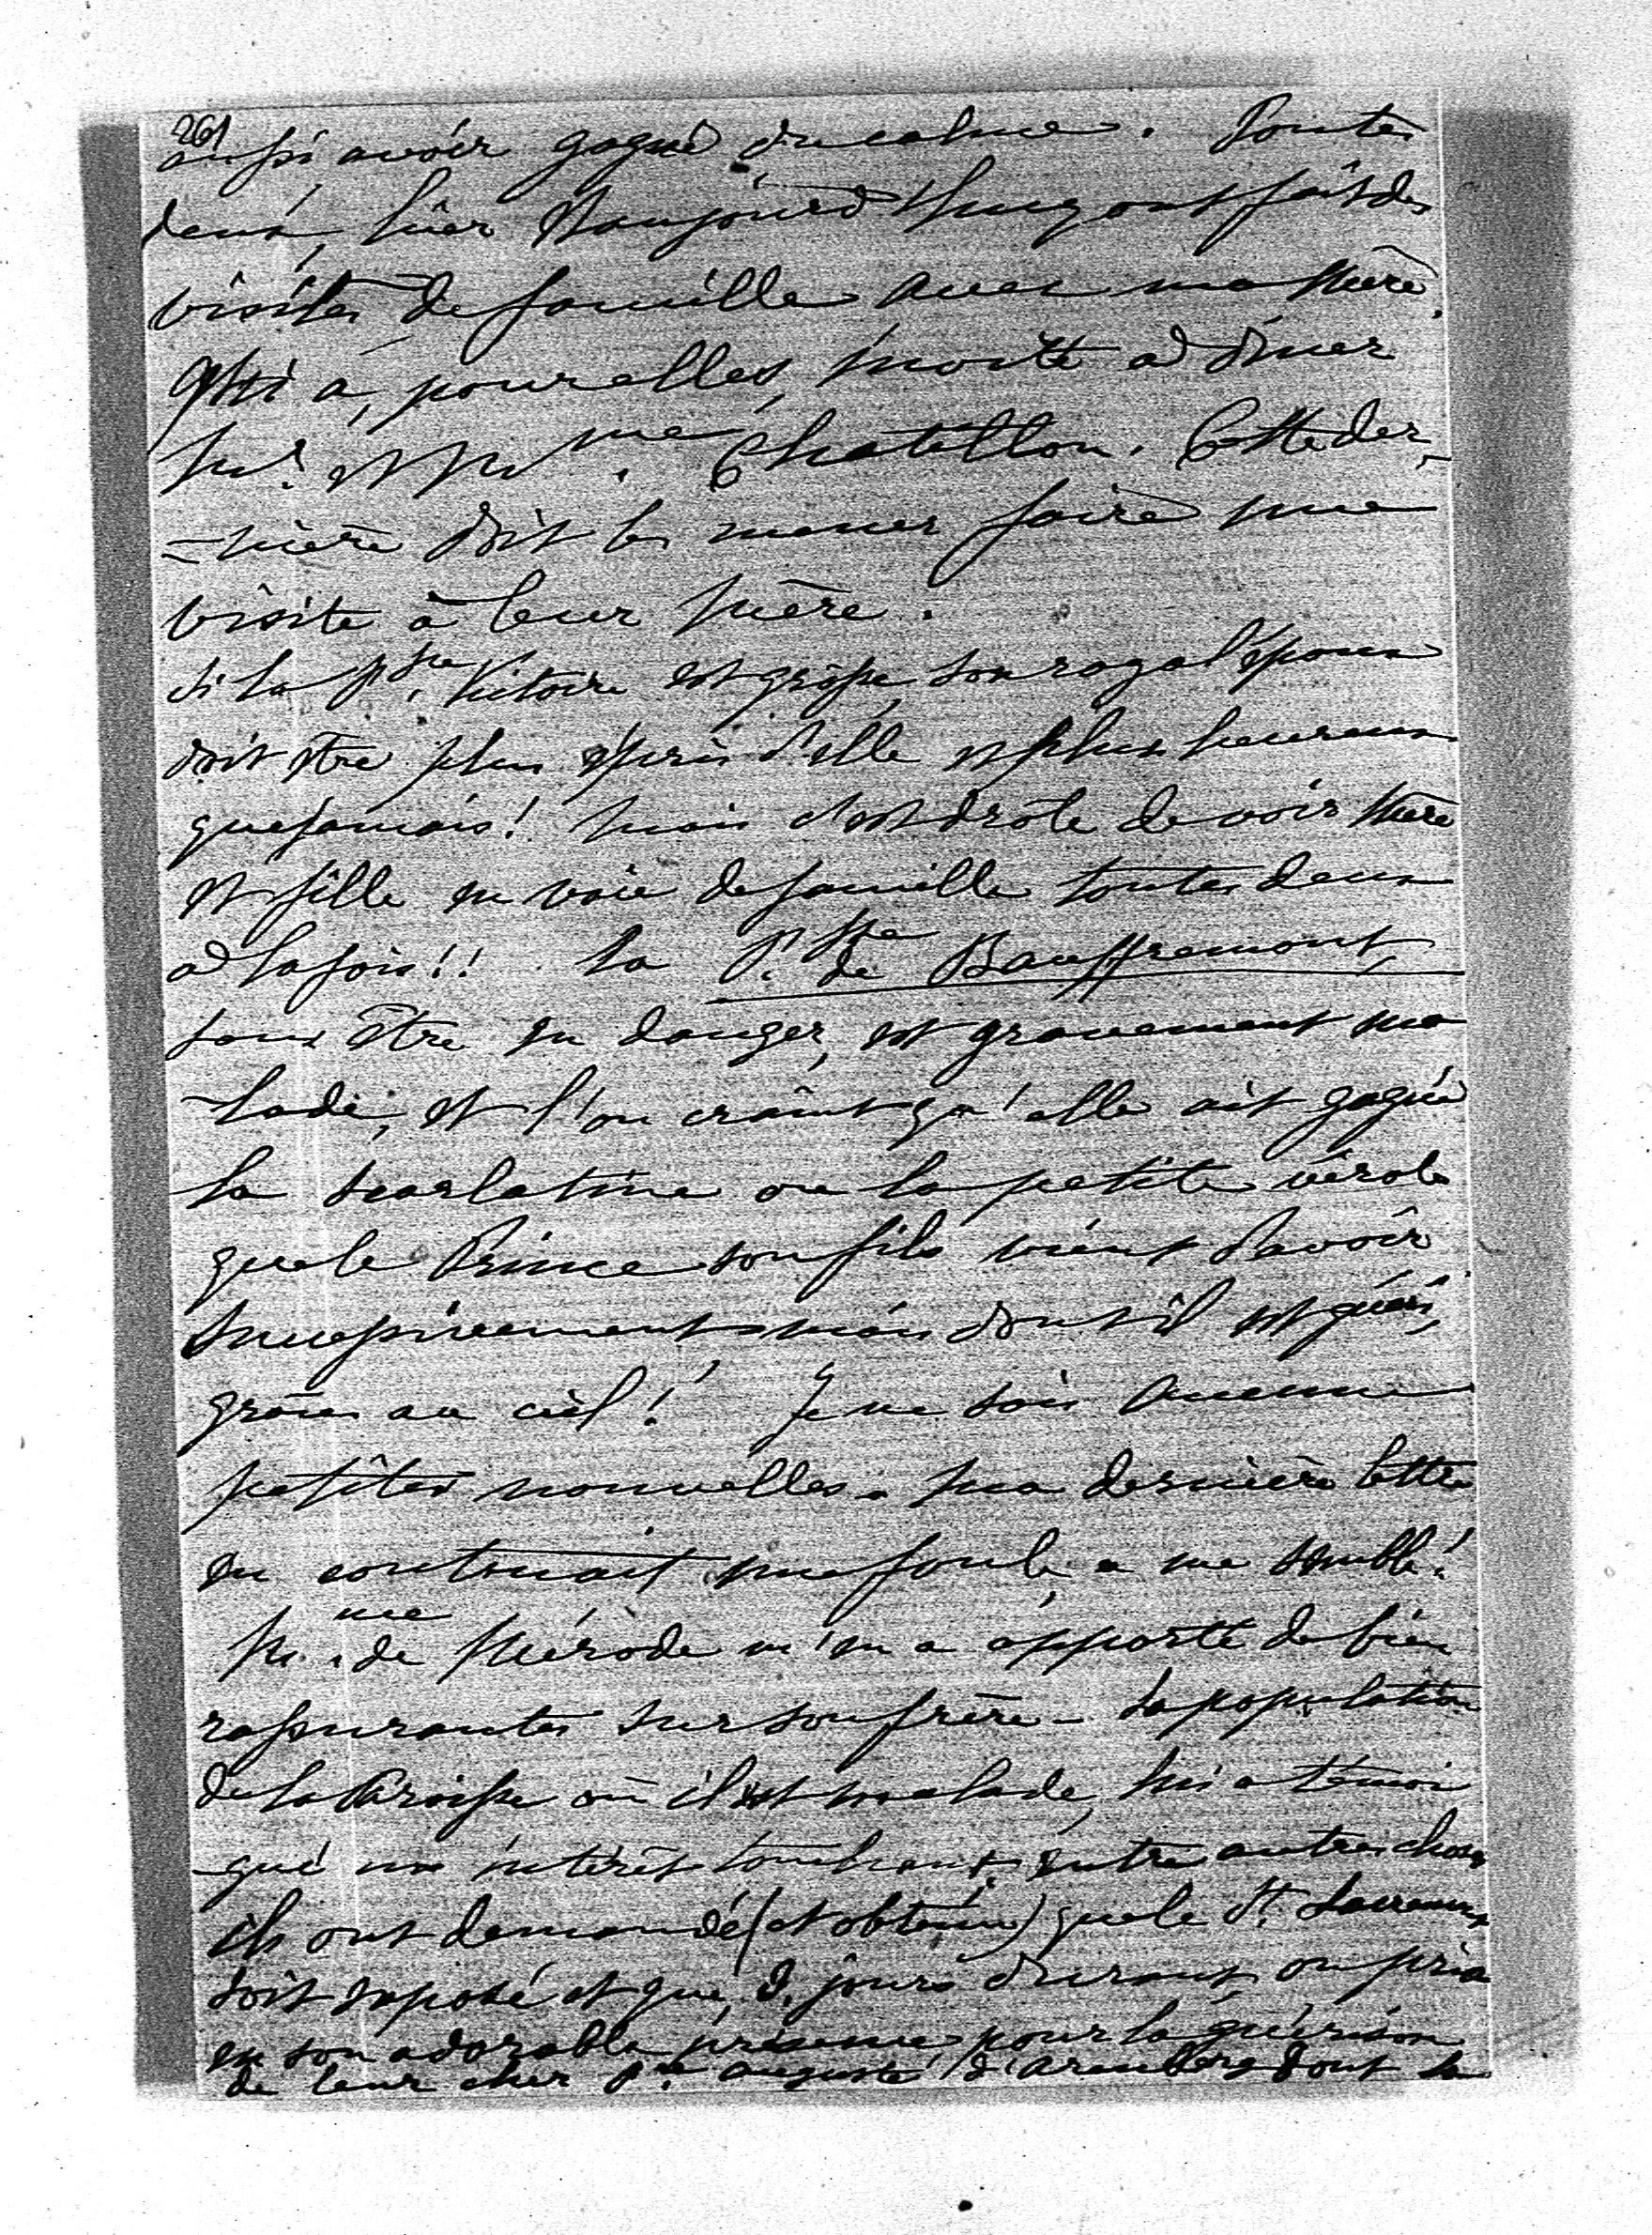 261
aussi avoir gagné du calme. Toutes
deux, hier et aujourd'hui, ont fait des
visites de famille avec ma Mère,
qui a, pour elles, invité à dîner
Mr. et Mme. Chatillon. Cette der-
-nière doit les mener faire une
visite à leur Mère.
Si la Psse. Victoire est grosse, son royal époux
doit être plus épris d'elle et plus heureux
que jamais! Mais c'est drôle de voir Mère
et fille en voie de famille toutes deux
à la fois!! La Psse de Bauffremont,
sans être en danger, est gravement ma
-lade, et l'on craint qu'elle ait gagné
la scarlatine ou la petite vérole
que le Prince son fils vient d'avoir
mais dont il est guéri,
grâces au ciel! Je ne sais aucunes
petites nouvelles. Ma dernière lettre
en contenait une foule, ce me semble!
Mme. de Mérode m'en a apporté de bien
rassurantes sur son frère. La population
de la Paroisse où il est malade, lui a témoi
-gné un intérêt touchant; entre autres choses
ils ont demandé (et obtenu) que le St. Sacrement
soit exposé et que, 8. jours durant, on pria
en son adorable présence pour la guérison
de leur cher Pce auguste d'Arenberg dont la